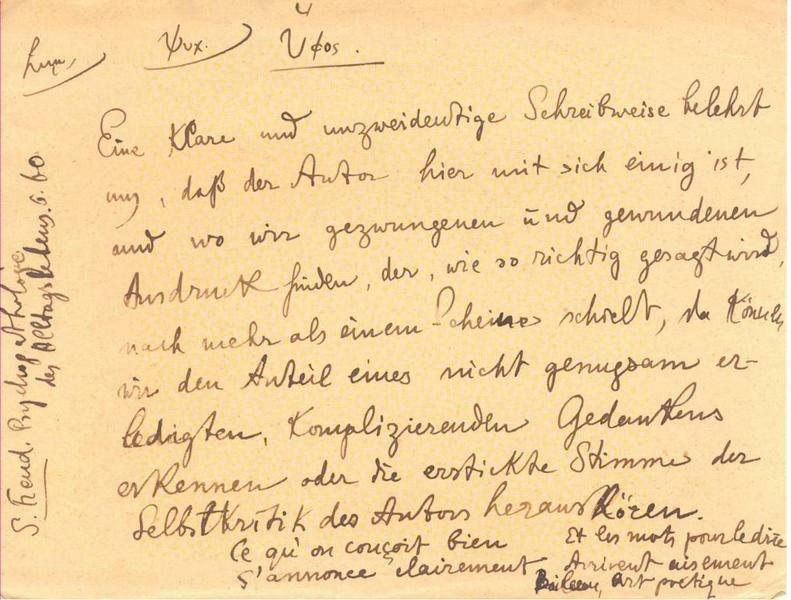 Ψυχ. Ύφος.
Eine Klare und unzweideutige Schreibweise belehrt
uns, daß der Autor hier mit sich einig ist,
und wo wir gezwungenen und gewundenen
Ausdruck finden, der, wie so richtig gesagt wird,
nach mehr als einem Scheine schielt, da Können
wir den Anteil eines nicht genugsam er-
ledigten, Komplizierenden Gedankens
erkennen oder die erstickte Stimme der
Selbstkritik des Autors heraushören.
Ce qu'on conçoit bien
S'annonce clairement
Et les mots pour le dire
Arrivent aisement
Boileau, Art poétique
S. Freud. Psychopathologie
des Alltagslebens. S. 60